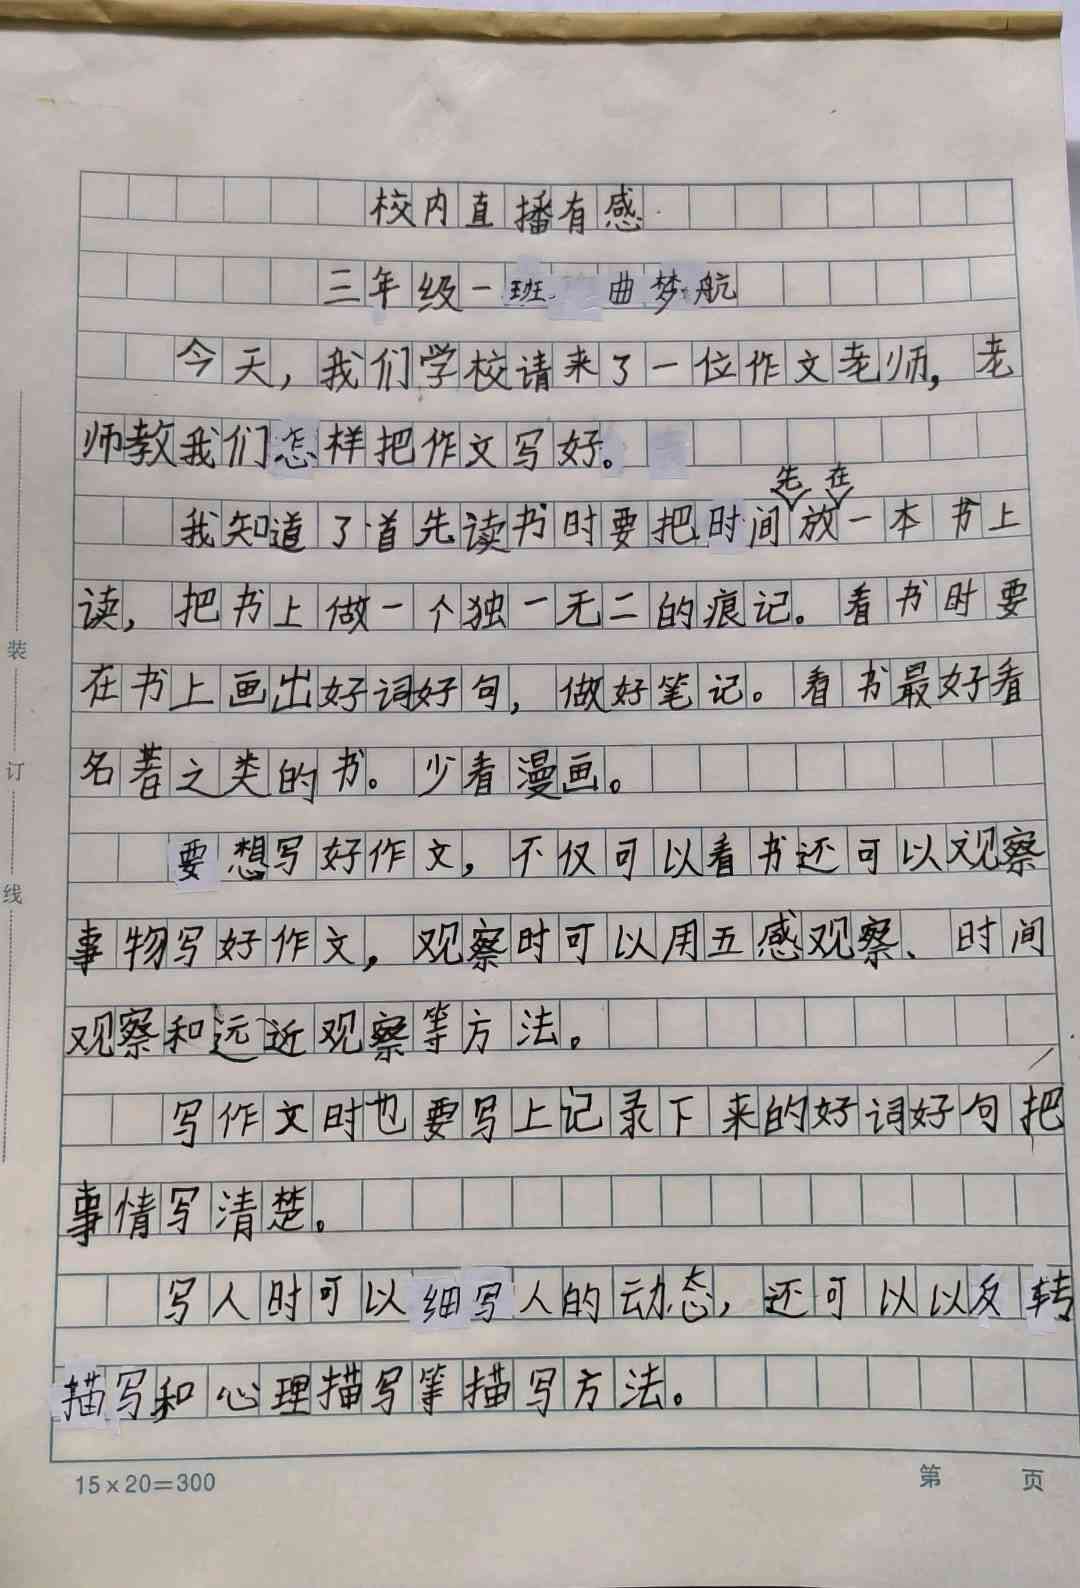 校内直播有感
三年级一班 曲梦航
今天，我们学校请来了一位作文老师，老
师教我们怎样把作文写好。
我知道了首先读书时要把时间先放在一本书上
读，把书上做一个独一无二的痕记。看书时要
在书上画出好词好句，做好笔记。看书最好看
名著之类的书。少看漫画。
要想写好作文，不仅可以看书还可以观察
事物写好作文，观察时可以用五感观察、时间
观察和远近观察等方法。
写作文时也要写上记录下来的好词好句把
事情写清楚。
写人时可以细写人的动态，还可以以反转
描写和心理描写等描写方法。
装
订
线
15×20=300
第 页